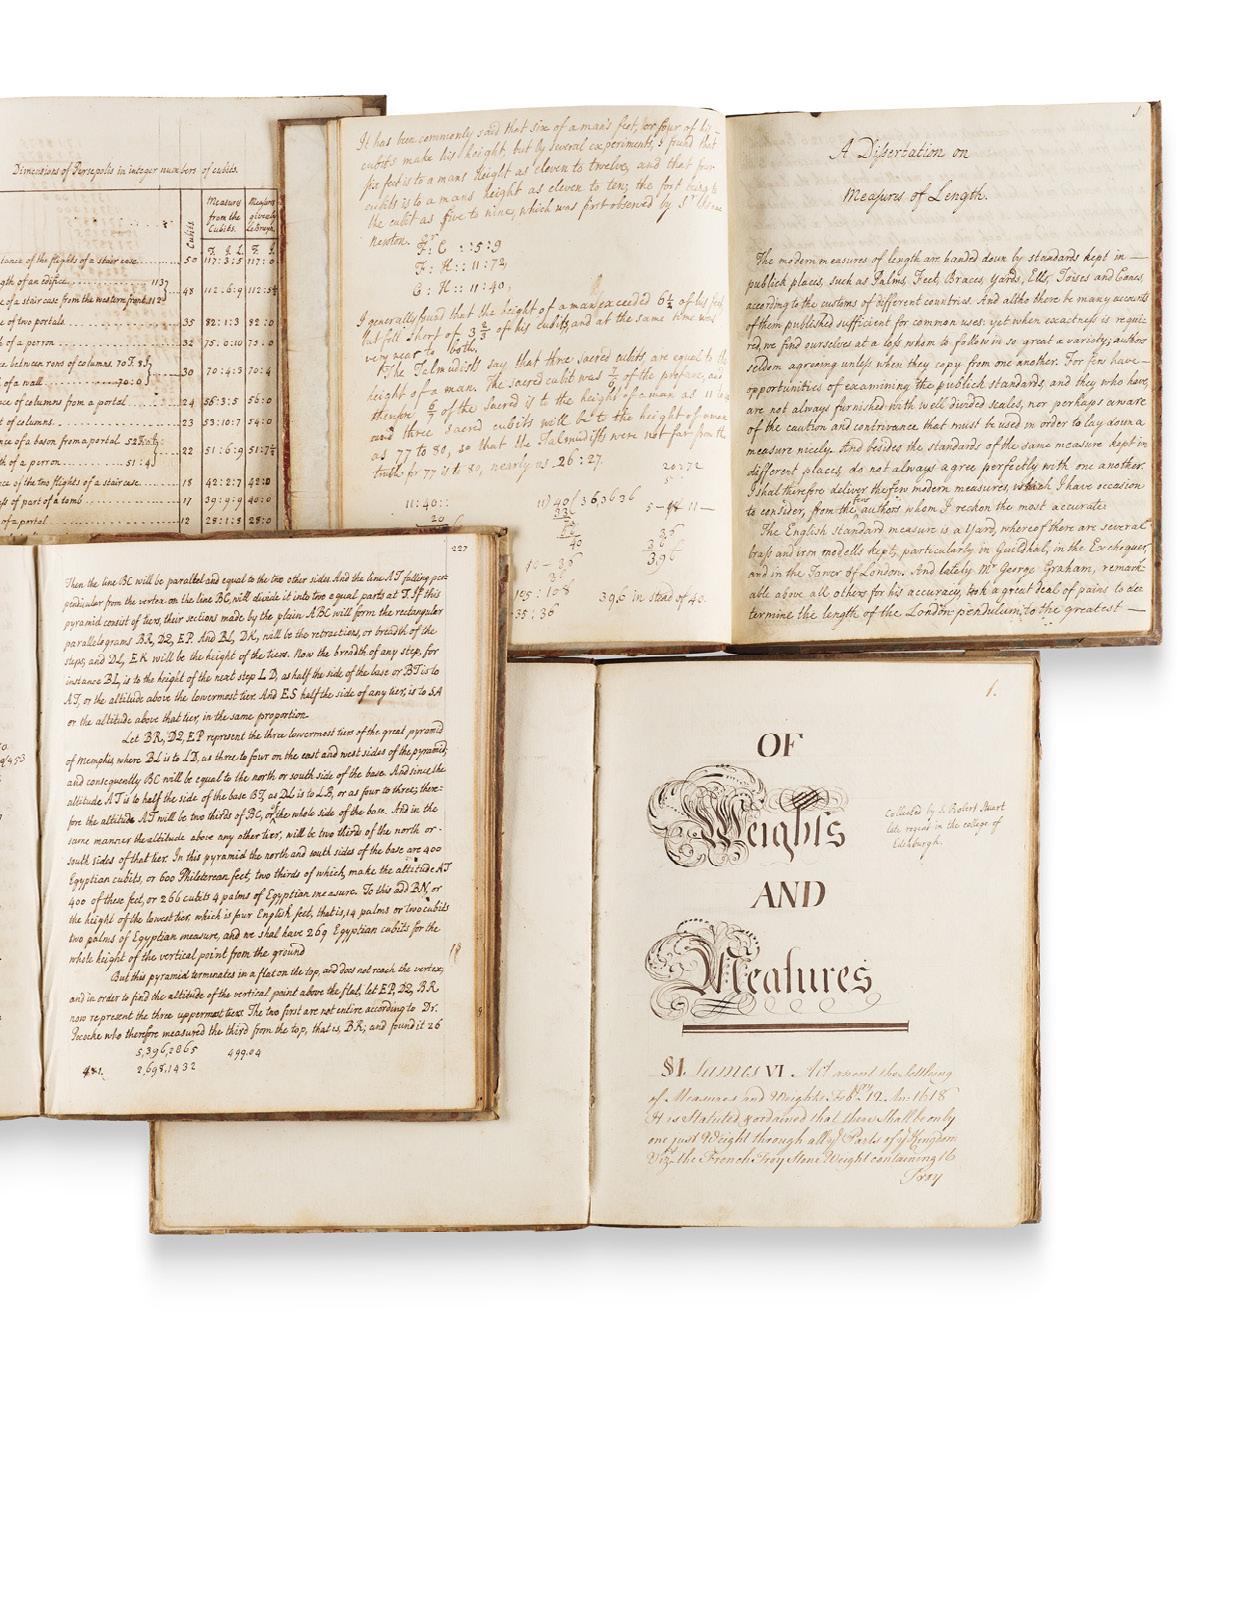 Dimensions of Persepolis in integer numbers of cubits.
Cubits
Measures from the Cubits.
Measures
F. I. L. F. I.
tance of the flights of a stair case 50 117:3:5 117:0
gth of an edifice 113
e of a stair case from the western front 48 112:6:9
e of two portals 35 82:1:3 82:0
h of a person 32 75:0:10 75:0
ce between rows of columns 70 F. 8
of a wall 70:0 30 70:4:3 70:4
ce of columns from a portal 24 56:3:5 56:0
t of columns. 23 53:10:7 54:0
nce of a bason from a portal 52
th of a perron 51:4 22 51:6:9
ce of the two flights of a staircase 18 42:2:7 42:0
ss of part of a tomb 17 39:9:9 40:0
of a portal 12 28:1:8 28:0
It has been commonly said that six of a man's feet, or four of his
cubits make his height, but by several experiments, I found that
six feet is to a mans height as eleven to twelve, and that four
cubits is to a mans height as eleven to ten; the foot being to
the cubit as five to nine, which was first observed by Sr Isaac
Newton.
F: C :: 5:9
F: H :: 11:72,
C: H :: 11:40,
I generally found that the height of a man exceeded 6½ of his feet
but fell short of 3⅔ of his cubits, and at the same time was
very near to both.
The Talmudists say that three sacred cubits are equal to the
height of a man. The sacred cubit was 7/6 of the profane, and
therefore 6/7 of the sacred is to the height of a man as 11 to
and three sacred cubits will be to the height of a man
as 77 to 80, so that the Talmudists were not far from the
truth for 77 is to 80, nearly as 26:27.
11:40::
11) 40 ( 3,63636
10 – 36
105:108
35:36
396 in stead of 40.
A Dissertation on
Measures of Length.
The modern measures of length are handed down by standards kept in
publick places, such as Palms, Feet, Braces, Yards, Ells, Toises and Canes,
according to the customs of different countries. And altho there be many accounts
of them published sufficient for common uses: yet when exactness is requi-
red, we find ourselves at a loss whom to follow in so great a variety; authors
seldom agreeing unless when they copy from one another. For few have
opportunities of examining the publick standards, and they who have,
are not always furnished with well divided scales, nor perhaps aware
of the caution and contrivance that must be used in order to lay down a
measure nicely. And besides the standards of the same measure kept in
different places, do not always agree perfectly with one another.
I shal therefore deliver the few modern measures, which I have occasion
to consider, from the few authors whom I reckon the most accurate.
The English standard measure is a Yard, whereof there are several
brass and iron modells kept, particularly in Guildhal, in the Exchequer,
and in the Tower of London. And lately Mr George Graham, remark-
able above all others for his accuracy, took a great deal of pains to de
termine the length of the London pendulum, to the greatest
227
Then the line BC will be parallel and equal to the two other sides. And the line AT falling per-
pendicular from the vertex on the line BC, will divide it into two equal parts at T. If this
pyramid consist of tiers, their sections made by the plain ABC will form the rectangular
parallelograms BR, D2, EP. And BL, DK, will be the retractions, or breadth of the
steps, and DL, EK will be the height of the tiers. Now the breadth of any step, for
instance BL, is to the height of the next step LD, as half the side of the base or BT is to
AT, or the altitude above the lowermost tier. And ES half the side of any tier, is to SA
or the altitude above that tier, in the same proportion.
Let BR, D2, EP represent the three lowermost tiers of the great pyramid
of Memphis, where BL is to LD, as three to four on the east and west sides of the pyramid;
and consequently BC will be equal to the north or south side of the base. And since the
altitude AT is to half the side of the base BT, as DL is to LB, or as four to three; there-
fore the altitude AT will be two thirds of BC, or of the whole side of the base. And in the
same manner the altitude above any other tier, will be two thirds of the north or
south sides of that tier. In this pyramid the north and south sides of the base are 400
Egyptian cubits, or 600 Phileterean feet, two thirds of which, make the altitude AT
400 of these feet, or 266 cubits 4 palms of Egyptian measure. To this add BN, or
the height of the lowest tier, which is four English feet, that is, 14 palms or two cubits
two palms of Egyptian measure, and we shal have 269 Egyptian cubits for the
whole height of the vertical point from the ground
But this pyramid terminates in a flat on the top, and does not reach the vertex;
and in order to find the altitude of the vertical point above the flat, let EP, D2, BR
now represent the three uppermost tiers. The two first are not entire according to Dr.
Pococke who therefore measured the third from the top, that is, BR; and found it 26
5,396,2865 499.04
481. 2,698,1432
1.
OF
Weights
AND
Measures
Collected by
Robert Stuart
late regent in the college of
Edinburgh.
§1. James VI. Act anent the settleing
of Measures and Weights Febry 19. An: 1618
It is Statuted & ordained that there shall be only
one just Weight through all ye Parts of ye Kingdom
Viz: the French Troy Stone Weight containing 16
Troy